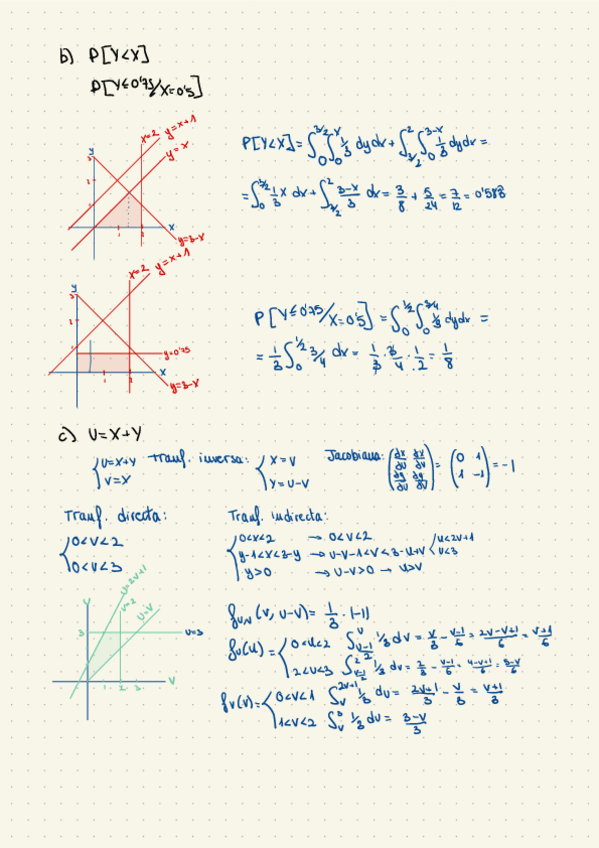 b) P[Y<X]
P[Y≤0'75/X=0'5]
y
3
x=2
y=x+1
y=x
1
2
x
y=3-x
P[Y<X] = ∫₀^{3/2} ∫₀^x 1/3 dy dx + ∫_{3/2}^2 ∫₀^{3-x} 1/3 dy dx =
= ∫₀^{3/2} 1/3 x dx + ∫_{3/2}^2 (3-x)/3 dx = 3/8 + 5/24 = 7/12 = 0'583
y
3
x=2
y=x+1
y=0'75
1
2
x
y=3-x
P[Y≤0'75/X=0'5] = ∫₀^{1/2} ∫₀^{3/4} 1/3 dy dx =
= 1/3 ∫₀^{1/2} 3/4 dx = 1/3 · 3/4 · 1/2 = 1/8
c) U=X+Y
{ U=X+Y
V=X
Tranf. inversa: { X=V
Y=U-V
Jacobiana: (∂x/∂U ∂x/∂V ∂y/∂U ∂y/∂V) = (0 1 1 -1) = -1
Tranf. directa:
{ 0<V<2
0<U<3
Tranf. indirecta:
{ 0<x<2 → 0<V<2
y-1<x<3-y → U-V-1<V<3-U+V { U<2V+1
U<3
y>0 → U-V>0 → U>V
U
U=2V+1
V=2
U=V
3
U=3
1
2
3
V
f_{U,V}(V, U-V) = 1/3 · |-1|
f_U(U) = { 0<U<2 ∫_{(U-1)/2}^U 1/3 dV = V/3 - (V-1)/6 = (2V-V+1)/6 = (V+1)/6
2<U<3 ∫_{(V-1)/2}^2 1/3 dV = 2/3 - (V-1)/6 = (4-V+1)/6 = (5-V)/6
f_V(V) = { 0<V<1 ∫_V^{2V+1} 1/3 dU = (2V+1)/3 - V/3 = (V+1)/3
1<V<2 ∫_V^3 1/3 dU = (3-V)/3